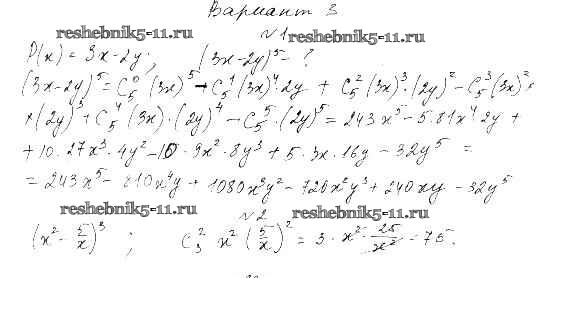 Вариант 3
reshebnik5-11.ru
№1 reshebnik5-11.ru
P(x) = 3x-2y; (3x-2y)^5 - ?
(3x-2y)^5 = C_5^0 (3x)^5 - C_5^1 (3x)^4 · 2y + C_5^2 (3x)^3 · (2y)^2 - C_5^3 (3x)^2 ×
× (2y)^3 + C_5^4 (3x) · (2y)^4 - C_5^5 · (2y)^5 = 243x^5 - 5·81x^4 2y +
+ 10·27x^3 · 4y^2 - 10 · 9x^2 · 8y^3 + 5·3x·16y - 32y^5 =
= 243x^5 - 810x^4y + 1080x^3y^2 - 720x^2y^3 + 240xy - 32y^5
reshebnik5-11.ru №2 reshebnik5-11.ru
(x^2 - 5/x)^3 ; C_3^2 x^2 (5/x)^2 = 3 · x^2 · 25/x^2 = 75.